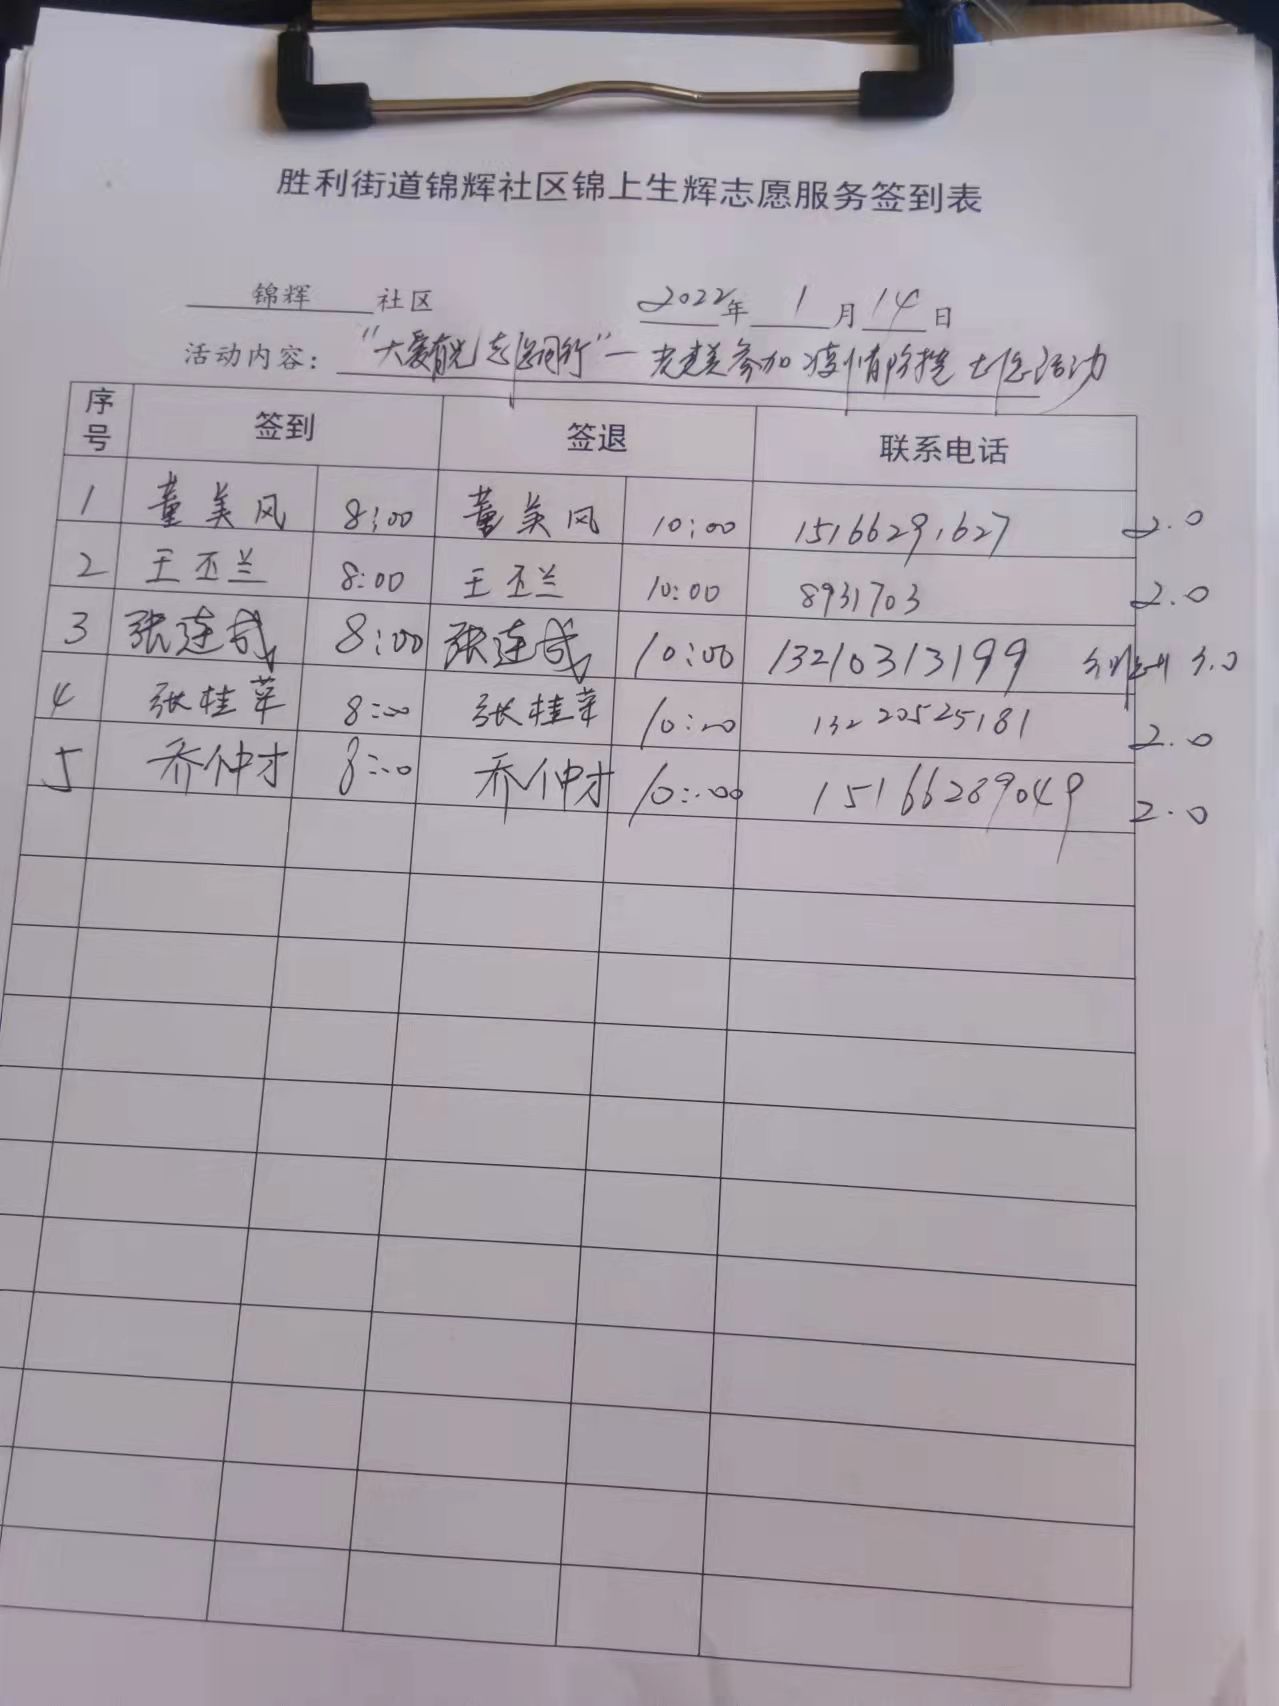 胜利街道锦辉社区锦上生辉志愿服务签到表
锦辉 社区 2022年 1 月 14 日
活动内容： “大爱有光 志愿同行”— 老党员参加疫情防控志愿活动
序号 签到 签退 联系电话
1 董美风 8:00 董美风 10:00 15166291627 2.0
2 王丕兰 8:00 王丕兰 10:00 8931703 2.0
3 张连成 8:00 张连成 10:00 13210313199 3.0
4 张桂苹 8:00 张桂苹 10:00 13220525181 2.0
5 乔仲才 8:00 乔仲才 10:00 15166289049 2.0